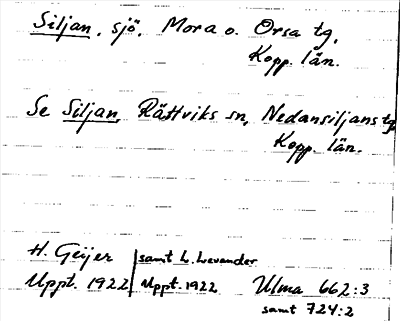 Siljan, sjö, Mora o. Orsa tg,
Kopp. län.
Se Siljan, Rättviks sn, Nedansiljans tg
Kopp. län.
H. Geijer | samt L. Levander
Uppt. 1922 | Uppt. 1922 Ulma 662:3
samt 724:2